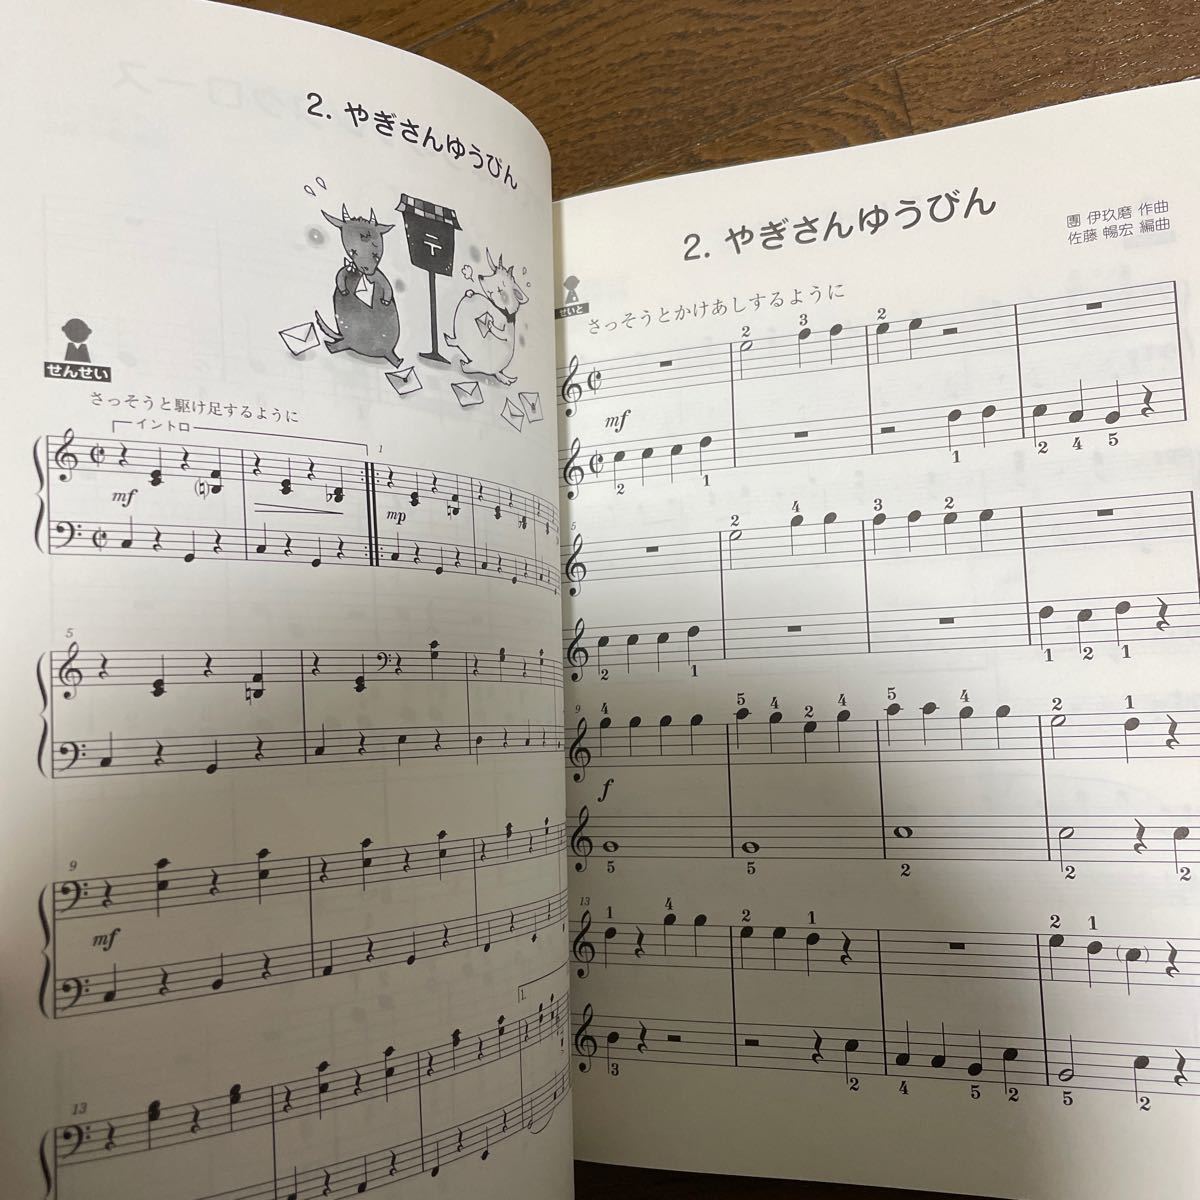 2. やぎさんゆうびん
〒
せんせい
さっそうと駆け足するように
イントロ
1
mf
mp
5
9
mf
13
1.
2. やぎさんゆうびん
團 伊玖磨 作曲
佐藤 暢宏 編曲
せいと
さっそうとかけあしするように
2 3 2
mf
2 1 1 2 4 5
5
2 4 3 2
2 1 1 2 1
9
4 5 4 2 4 5 4 2 1
f
5 5 2 2 2
13
1 4 2 1 2 1
3 2 4 5 2 5 2